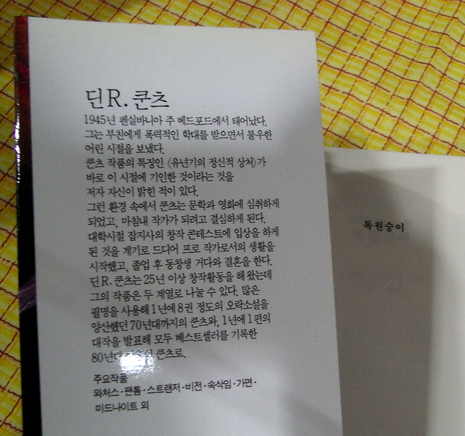 딘 R. 쿤츠
1945년 펜실바니아 주 베드포드에서 태어났다.
그는 부친에게 폭력적인 학대를 받으면서 불우한
어린 시절을 보냈다.
쿤츠 작품의 특징인 〈유년기의 정신적 상처〉가
바로 이 시절에 기인한 것이라는 것을
저자 자신이 밝힌 적이 있다.
그런 환경 속에서 쿤츠는 문학과 영화에 심취하게
되었고, 마침내 작가가 되려고 결심하게 된다.
대학시절 잡지사의 창작 콘테스트에 입상을 하게
된 것을 계기로 드디어 프로 작가로서의 생활을
시작했고, 졸업 후 동창생 거다와 결혼을 한다.
딘 R. 쿤츠는 25년 이상 창작활동을 해 왔는데
그의 작품은 두 계열로 나눌 수 있다. 많은
필명을 사용해 1년에 8권 정도의 오락소설을
양산했던 70년대까지의 쿤츠와, 1년에 1편의
대작을 발표해 모두 베스트셀러를 기록한
80년대 쿤츠로.
주요작품
와처스·팬톰·스트랜저·비전·속삭임·가면·
미드나이트 외
독원숭이